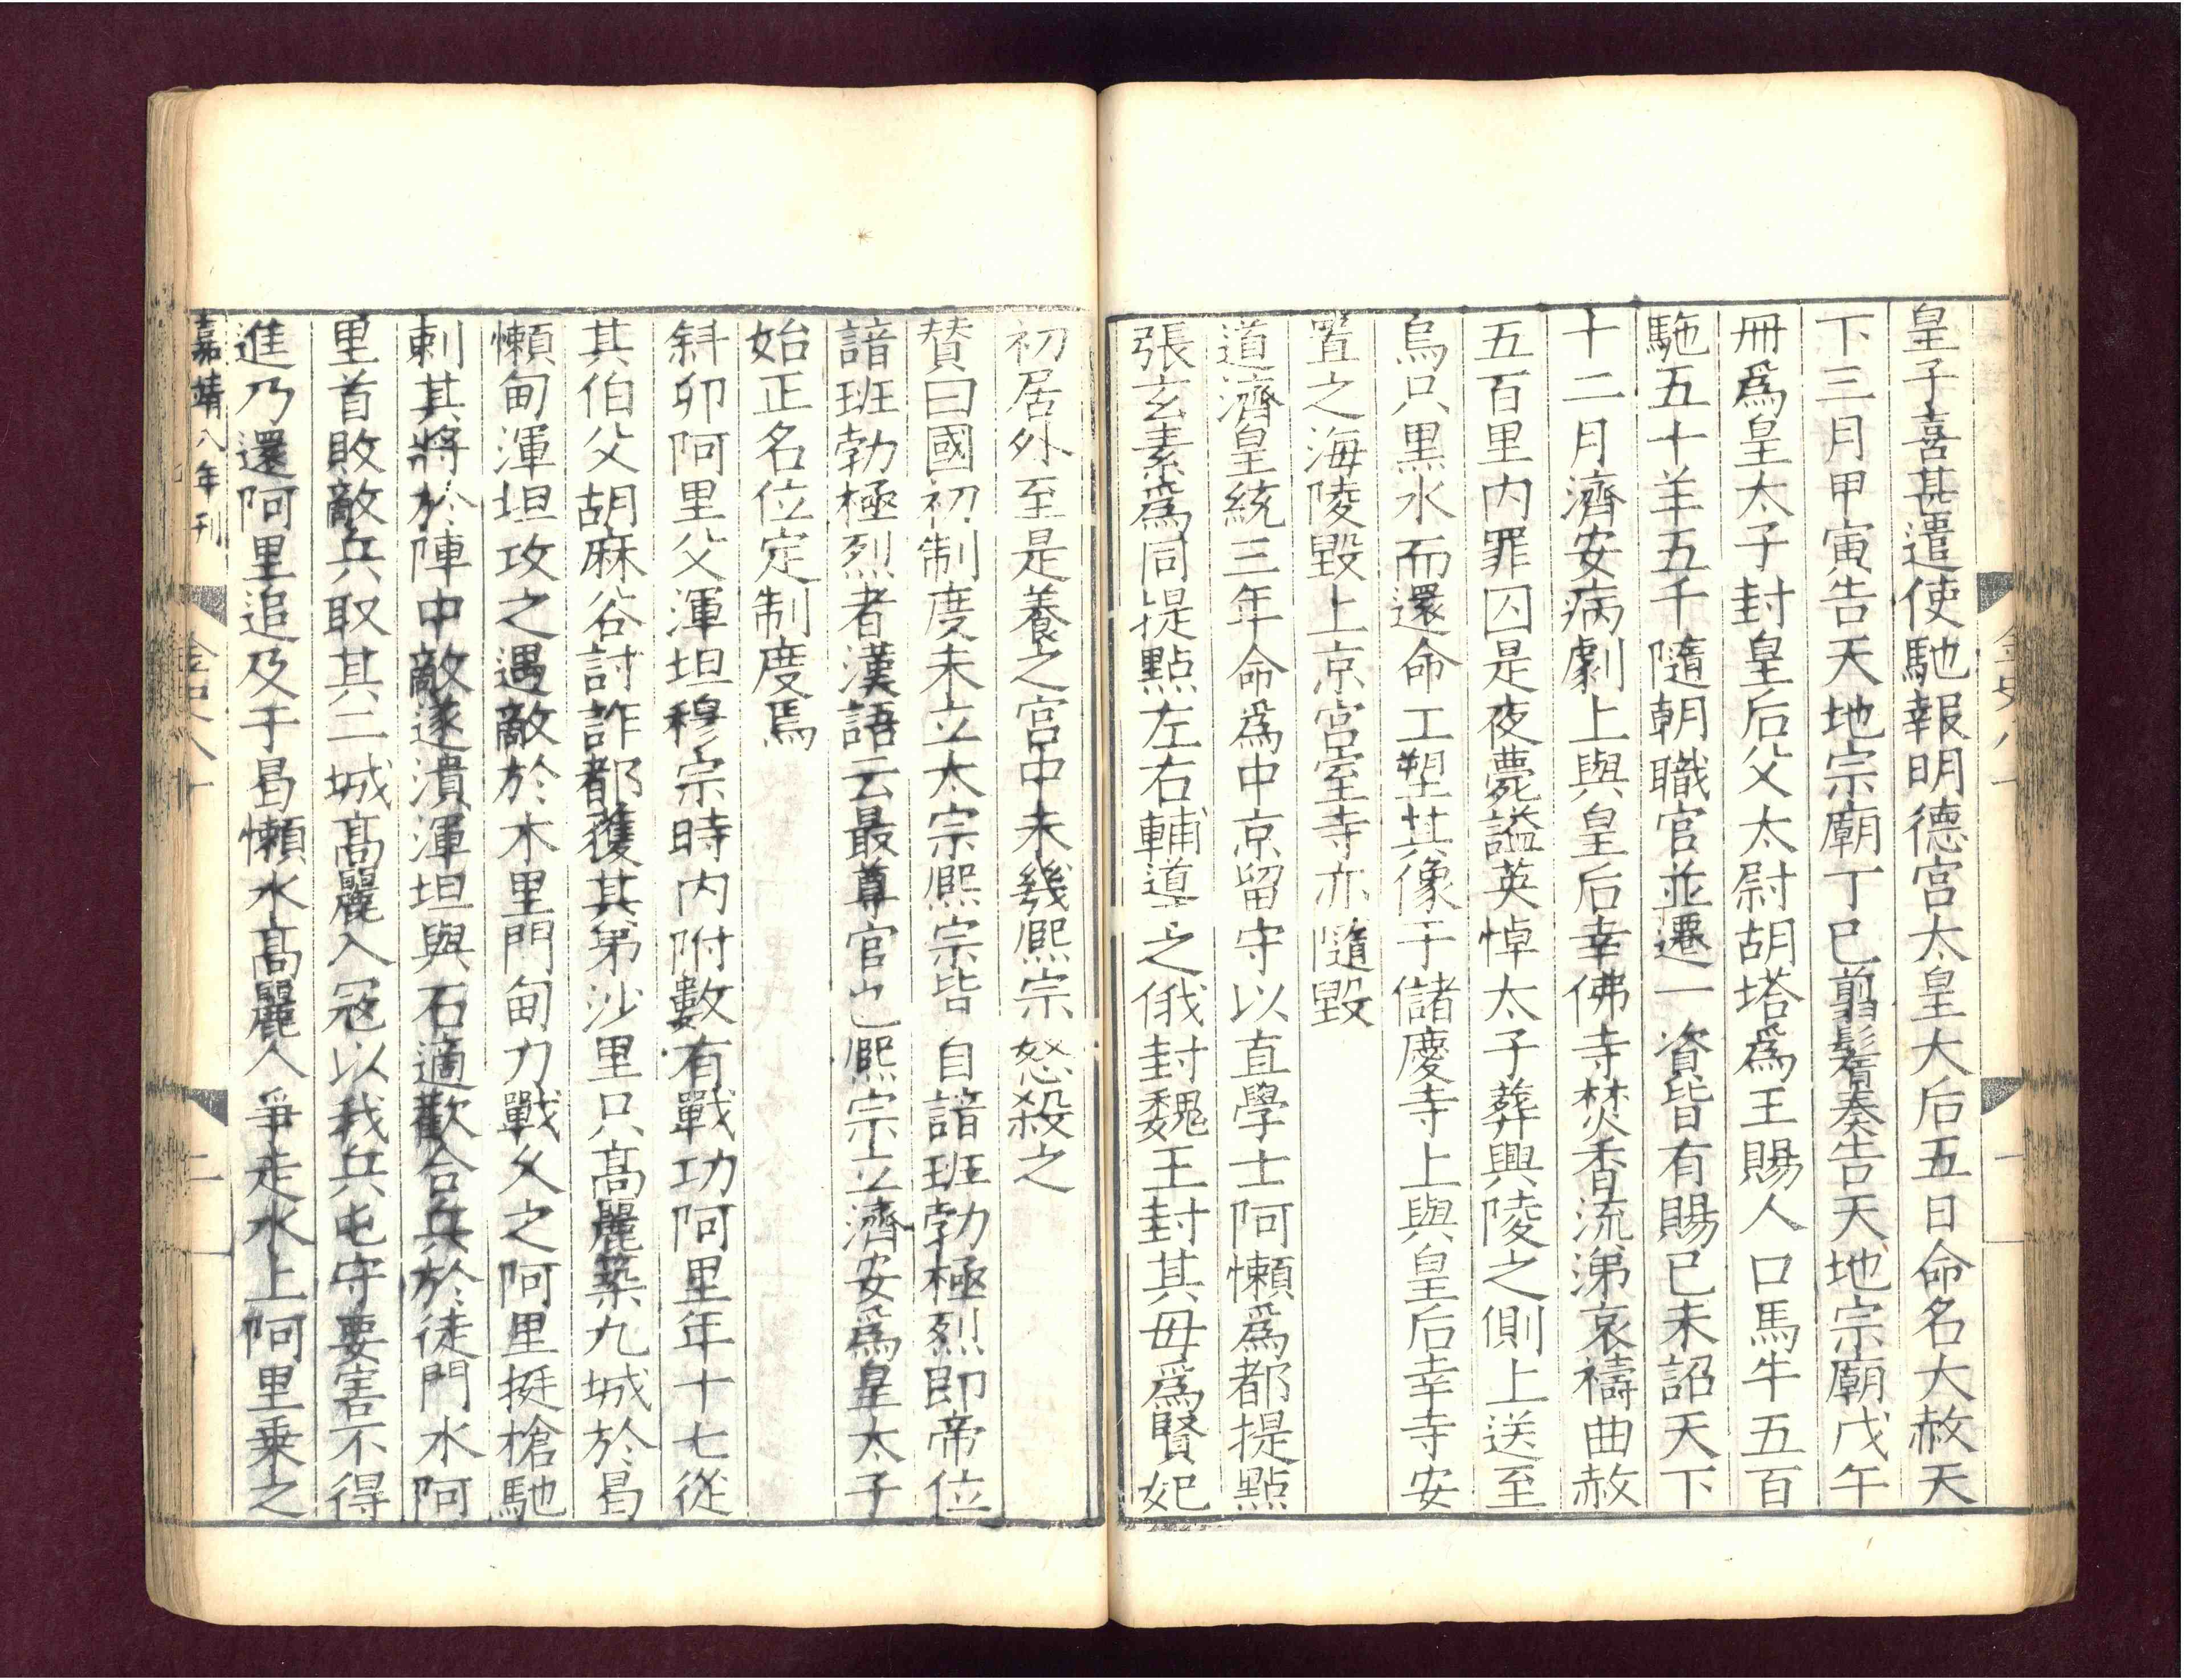 皇子喜甚遣使馳報明德宮太皇大后五日命名大赦天
下三月甲寅告天地宗廟丁巳翦鬌奏告天地宗廟戊午
冊爲皇太子封皇后父太尉胡塔爲王賜人口馬牛五百
駞五十羊五千隨朝職官並遷一資皆有賜己未詔天下
十二月濟安病劇上與皇后幸佛寺焚香流涕哀禱曲赦
五百里内罪囚是夜薨謚英悼太子葬興陵之側上送至
烏只黒水而還命工塑其像于儲慶寺上與皇后幸寺安
置之海陵毀上京宮室寺亦隨毀
道濟皇統三年命爲中京留守以直學士阿懶爲都提點
張玄素爲同提點左右輔導之俄封魏王封其母爲賢妃
初居外至是養之宮中未幾熈宗怒殺之
賛曰國初制度未立太宗熈宗皆自諳班勃極烈即帝位
諳班勃極烈者漢語云最尊官也熈宗立濟安爲皇太子
始正名位定制度焉
斜卯阿里父渾坦穆宗時内附數有戰功阿里年十七從
其伯父胡麻谷討詐都獲其弟沙里只髙麗築九城於曷
懶甸渾坦攻之遇敵於木里門甸力戰久之阿里挺槍馳
刺其將於陣中敵遂潰渾坦與石適歡合兵於徒門水阿
里首敗敵兵取其二城髙麗入寇以我兵屯守要害不得
進乃還阿里追及于曷懶水髙麗人爭走水上阿里乗之
嘉靖八年刊
金史八十
二